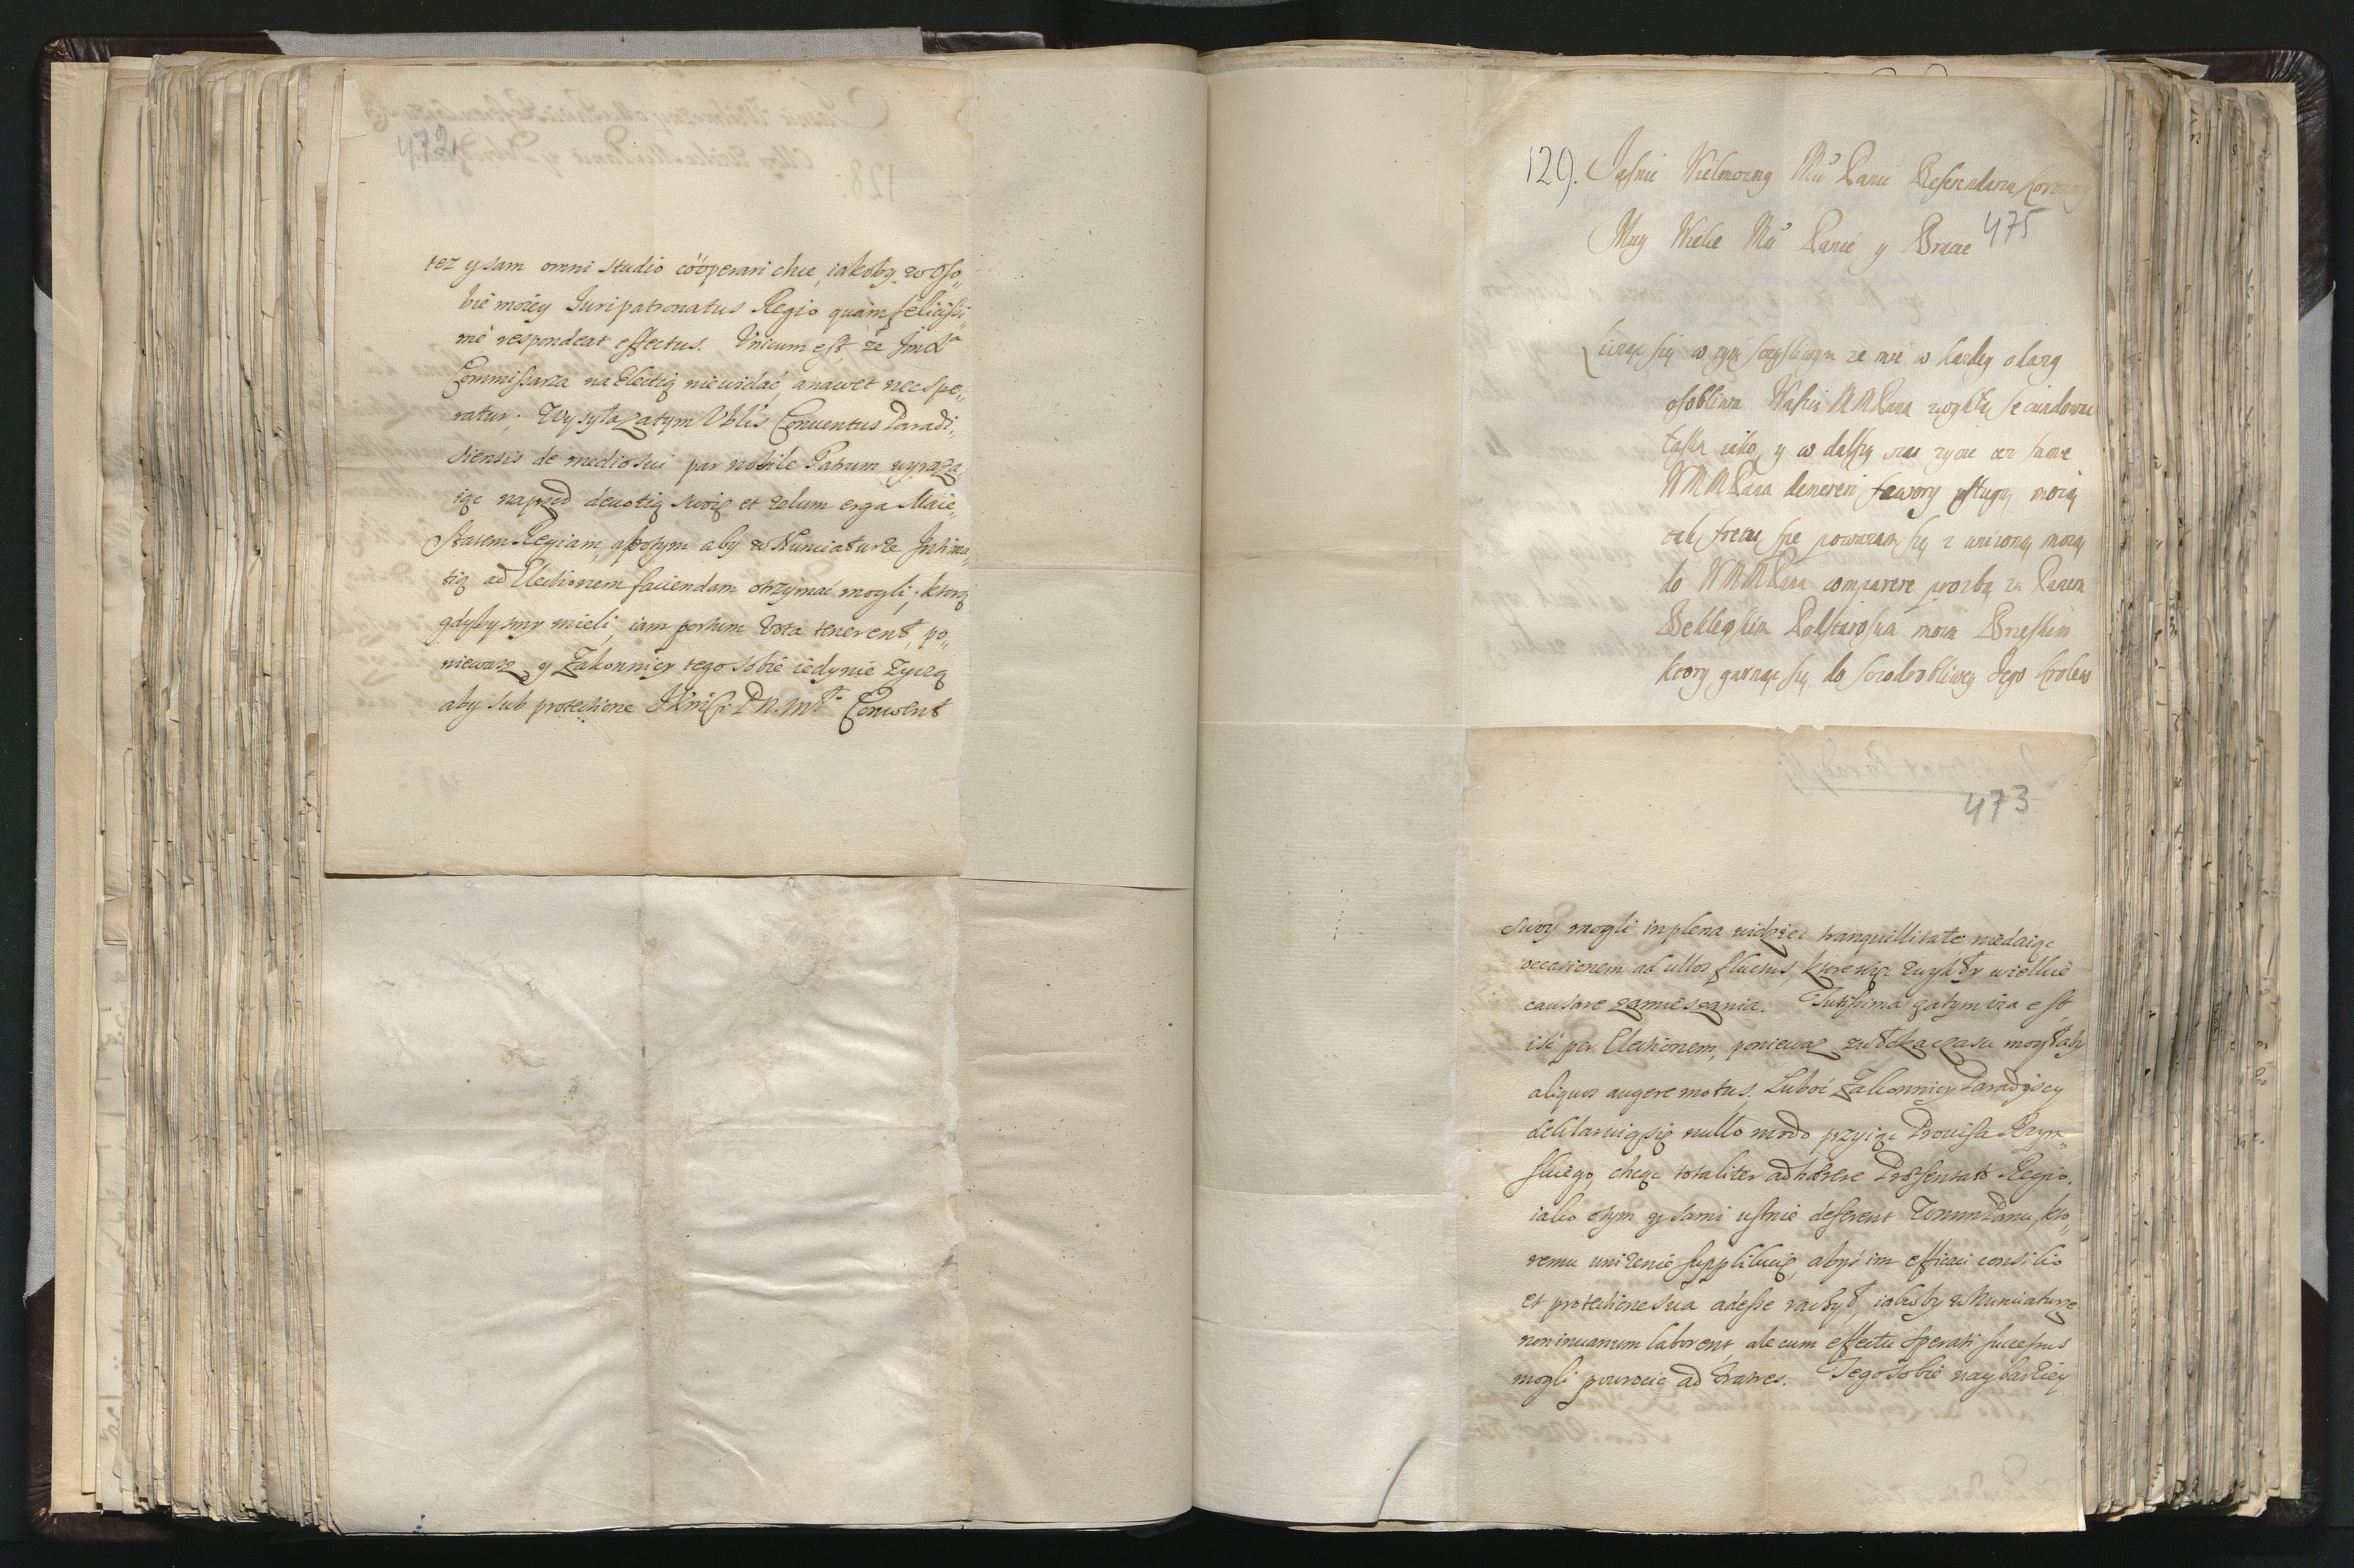 472
też y sam omni studio cööperari chce, iakoby w Oso„
bie moiey Juripatronatus Regio quàm feliciſsi„
mè respondeat effectus. Vnicum est, że
Commiſsarza na Elektią niewidać, anawet nec spe„
ratur; Wysyła zatym Conuentus Paradi„
siensis de medio sui par nobile Patrum wyraża„
iąc naprzod deuotią swoię et zelum erga Maie„
statem Regiam, apotym aby w Nunciaturze Intima„
tią ad Electionem faciendam otrzymać mogli; ktorą
gdybysmy mieli, iam portum Vota tenerent, po„
niewasz y Zakonnicy tego sobie iedynie życzą
aby sub protectione Conwent
129. Jaśnie Wielmozny Mci Panie Referendarzu Koronny
Moy Wielce Mci Panie y Bracie 475
w tym szczęsliwym ze mie w kazdey okazy
osobliwa MMPana zwykła secundowac
łaska iako y w dalszy czas zycie
WMMPana demereri fawory usługą moią
tak się powazam się z unizoną moią
do WMMPana comparere prozbą za Panem
Podstarosim moim Brzeskim
ktory garnąc się do szczodrobliwey Jego Krolew
473
swoy mogli in plena widziec tranquillitate, niedaiąc
occasionem ad ullos fluctus, ktore więc zwykły wielkie
causare zamieszania. Tutiſsima zatym via est
iść per Electionem, ponieważ zwłoka czasu mogłaby
aliquos augere motus. Luboć Zakonnicy Paradyscy
deklaruią się nullo modo przyiąc Prowisa Rzym„
skiego, chcąc totaliter adhærere Præsentato Regio,
iako otym y sami ustnie deferent WMMPanu, kto„
remu unizenie supplikuię, abyś im efficaci consilio
et protectione sua adeſse raczył, iakoby w Nunciaturze
non inuanum laborent, ale cum effectu sperati succeſsus
mogli powrocic ad Fratres. Tego sobie naybardziey